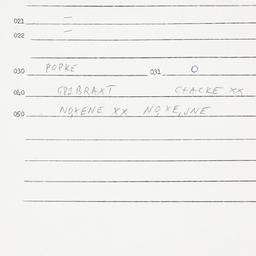 021 —
022 —
030 POPKE 031 O
040 GPIBRAXT CTACKE XX
050 NOXENE XX NO,XE,JNE